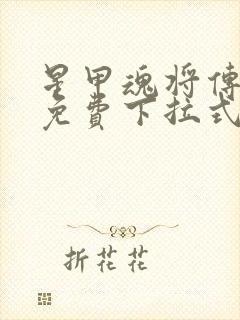 星甲魂将傳
免費下拉式
折花花